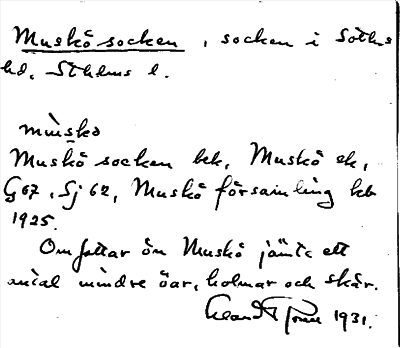 Muskö socken, socken i Sotlms
hd, Sthlms l.
mùskə
Muskö socken kbk, Muskö ek,
G 67, Sj 62, Muskö församling kb
1925.
Omfattar ön Muskö jämte ett
antal mindre öar, holmar och skär.
1931.